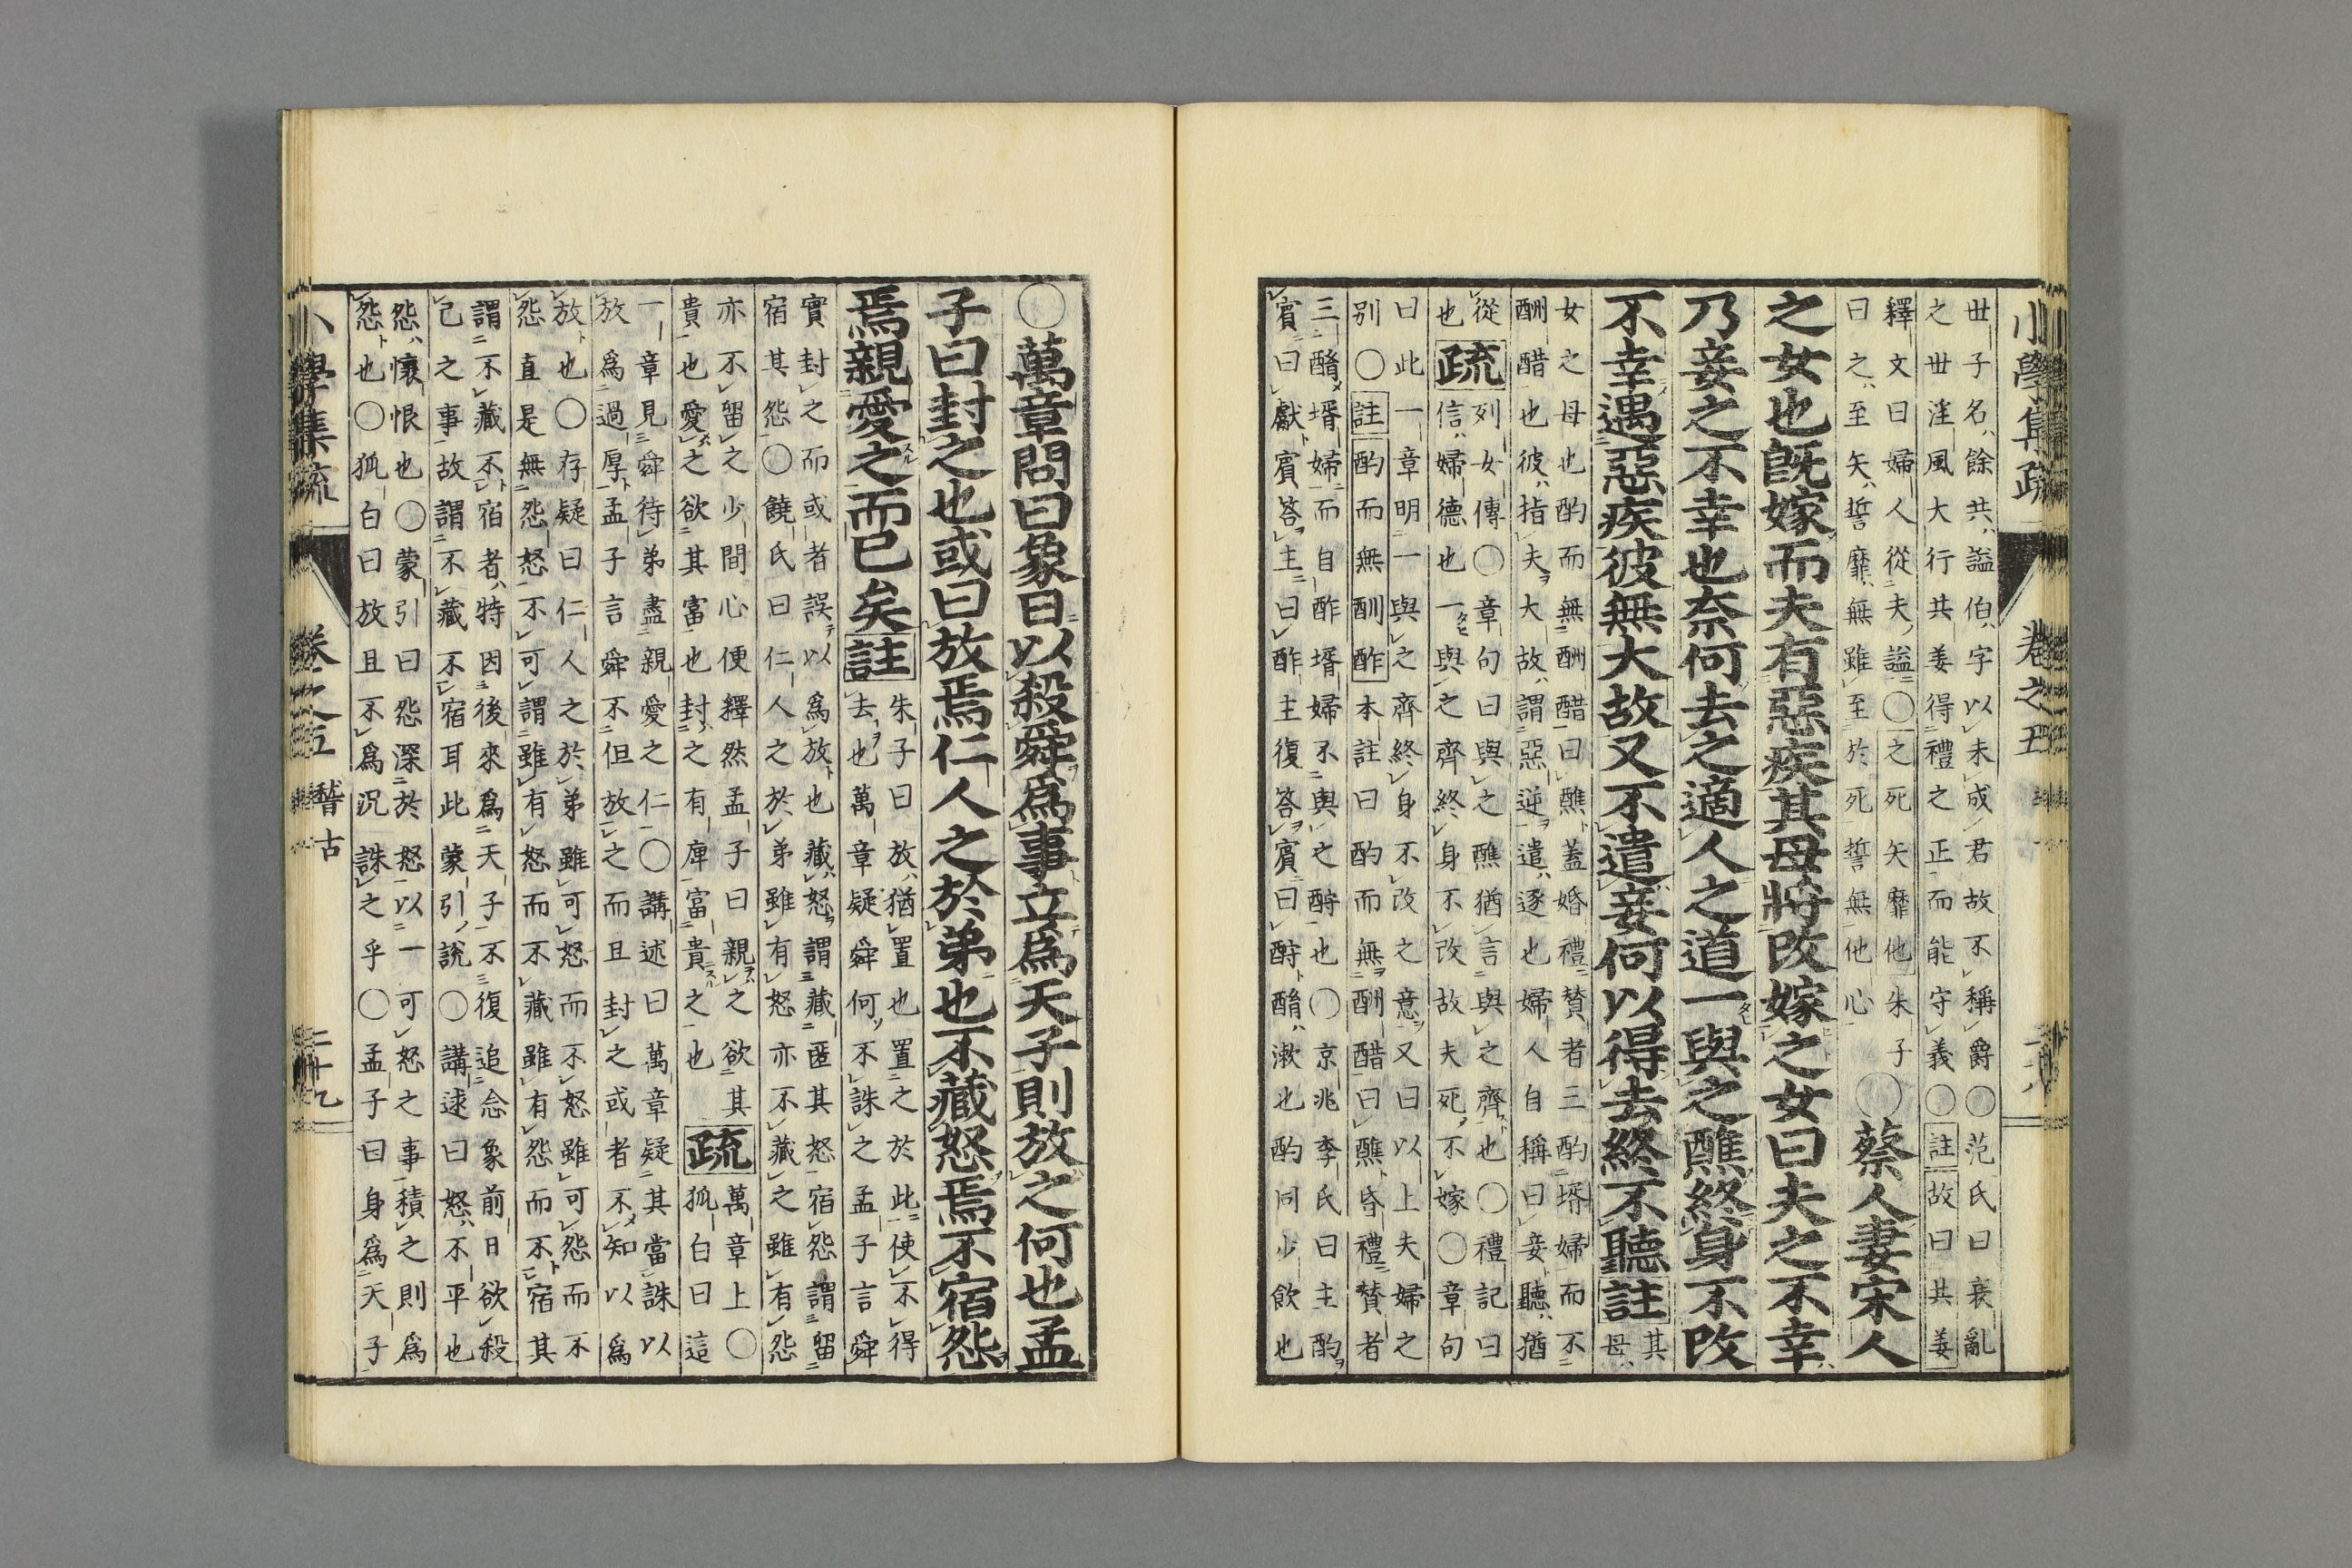 小學集疏 卷之五
世子名餘共謚伯字以未成君故不稱爵〇范氏曰衰亂
之世淫風大行共姜得禮之正而能守義〇註故曰共姜
釋文曰婦人從夫謚〇之死矢靡他朱子
曰之至矢誓靡無雖至於死誓無他心
〇蔡人妻宋人
之女也旣嫁而夫有惡疾其母將改嫁之女曰夫之不幸
乃妾之不幸也奈何去之適人之道一與之醮終身不改
不幸遇惡疾彼無大故又不遣妾何以得去終不聽註
其
母
女之母也酌而無酬醋曰醮蓋婚禮賛者三酌壻婦而不
酬醋也彼指夫大故謂惡逆遣逐也婦人自稱曰妾聽猶
從列女傳〇章句曰與之醮猶言與之齊也〇禮記曰
也疏信婦德也一與之齊終身不改故夫死不嫁〇章句
曰此一章明一與之齊終身不改之意又曰以上夫婦之
别〇註酌而無酬酢本註曰酌而無酬醋曰醮昏禮賛者
三酳壻婦而自酢壻婦不與之酹也〇京兆李氏曰主酌
賓曰獻賓答主曰酢主復答賓曰酬酳漱也酌同少飲也
〇萬章問曰象日以殺舜爲事立爲天子則放之何也孟
子曰封之也或曰放焉仁人之於弟也不藏怒焉不宿怨
焉親愛之而已矣註
朱子曰放猶置也置之於此使不得
去也萬章疑舜何不誅之孟子言舜
實封之而或者誤以爲放也藏怒謂藏匿其怒宿怨謂留
宿其怨〇饒氏曰仁人之於弟雖有怒亦不藏之雖有怨
亦不留之少間心便釋然孟子曰親之欲其
貴也愛之欲其富也封之有庳富貴之也
疏
萬章上〇
狐白曰這
一章見舜待弟盡親愛之仁〇講述曰萬章疑其當誅以
放爲過厚孟子言舜不但放之而且封之或者不知以爲
放也〇存疑曰仁人之於弟雖可怒而不怒雖可怨而不
怨直是無怨怒不可謂雖有怒而不藏雖有怨而不宿其
謂不藏不宿者特因後來爲天子不復追念象前日欲殺
己之事故謂不藏不宿耳此蒙引說〇講述曰怒不平也
怨懷恨也〇蒙引曰怨深於怒以一可怒之事積之則爲
怨也〇狐白曰放且不爲況誅之乎〇孟子曰身爲天子
小學集疏 卷之五 稽古 二十九